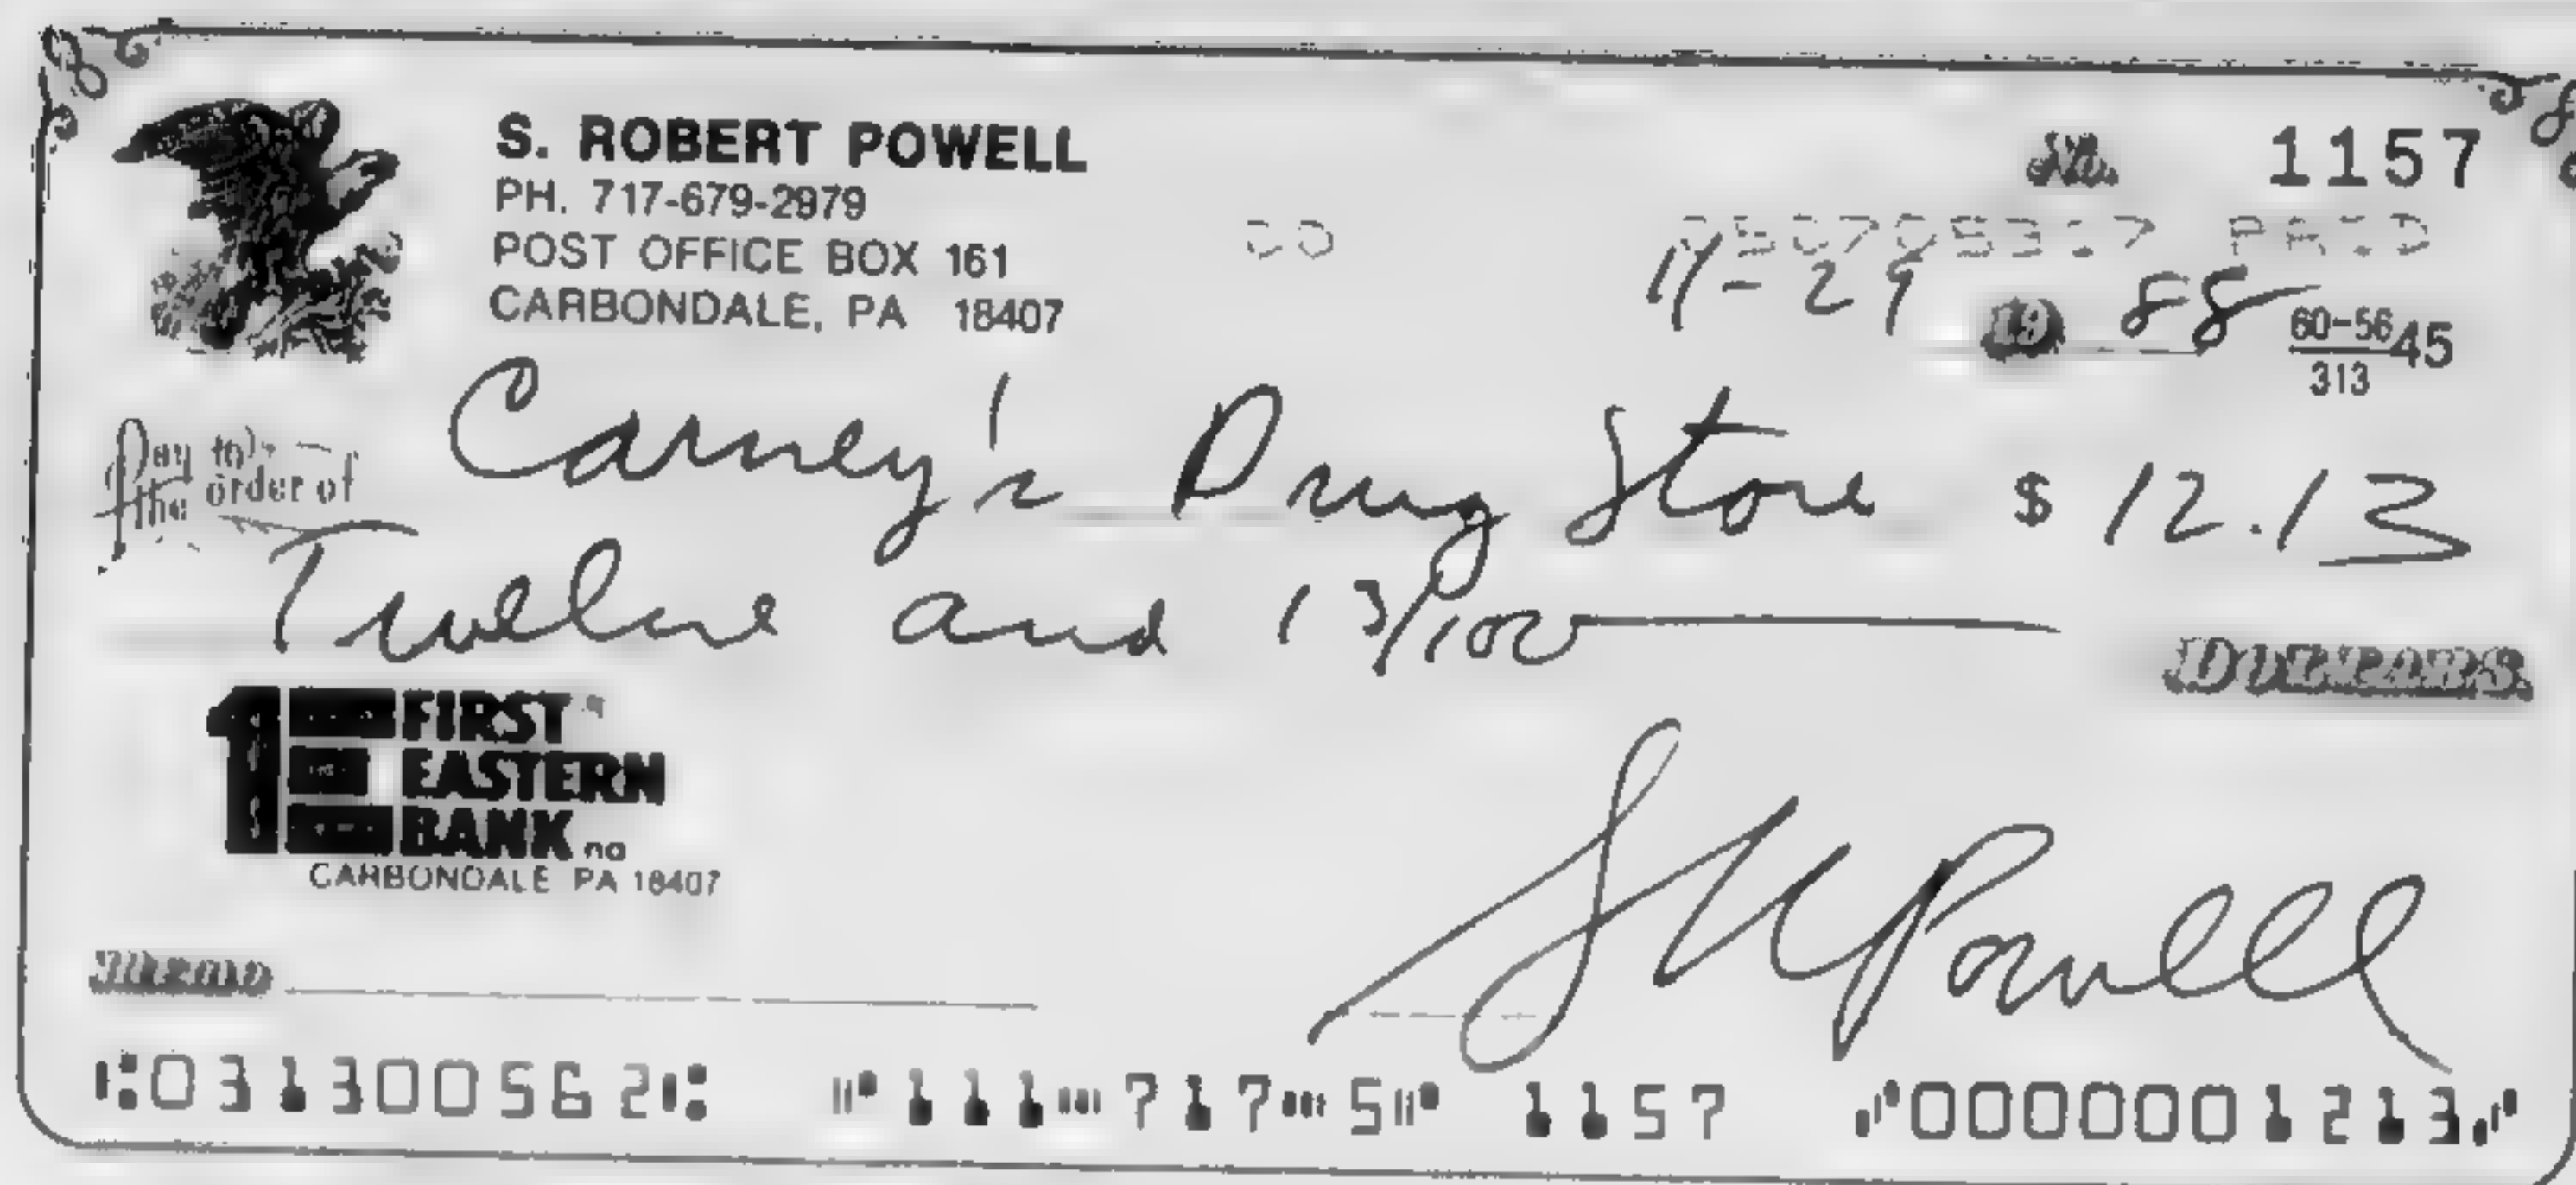 S. ROBERT POWELL
PH. 717-679-2979
POST OFFICE BOX 161
CARBONDALE, PA 18407
No. 1157
PAID
11-29 19 88
60-56 45
313
Pay to the order of Carney's Drug Store $ 12.13
Twelve and 13/100 DOLLARS
1 FIRST
EASTERN
BANK na
CARBONDALE PA 18407
Memo
S R Powell
⑆031300562⑆ ⑈111⑉717⑉5⑈ 1157 ⑇0000001213⑇